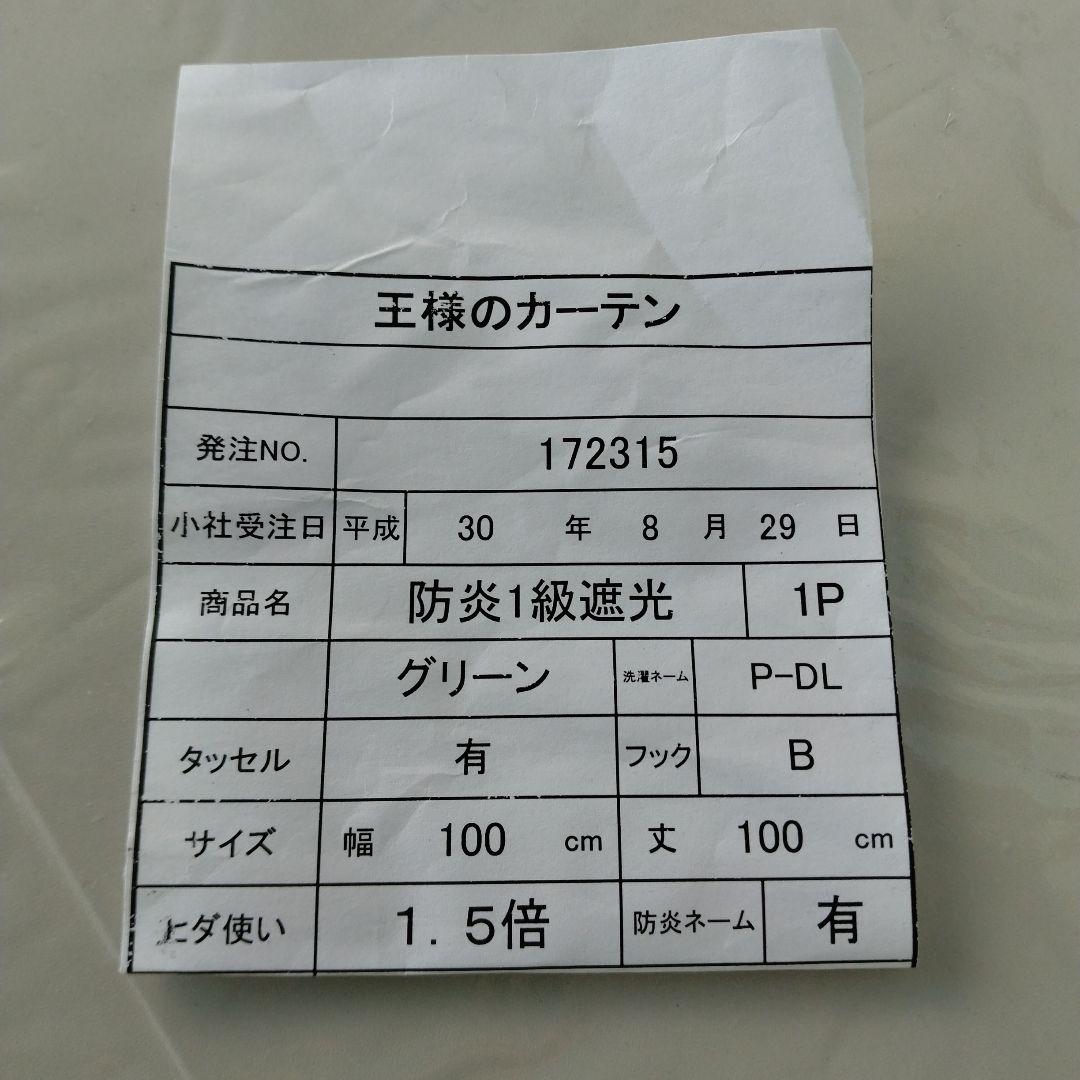 王様のカーテン
発注NO. 172315
小社受注日 平成 30 年 8 月 29 日
商品名 防炎1級遮光 1P
グリーン 洗濯ネーム P-DL
タッセル 有 フック B
サイズ 幅 100 cm 丈 100 cm
ヒダ使い 1.5倍 防炎ネーム 有